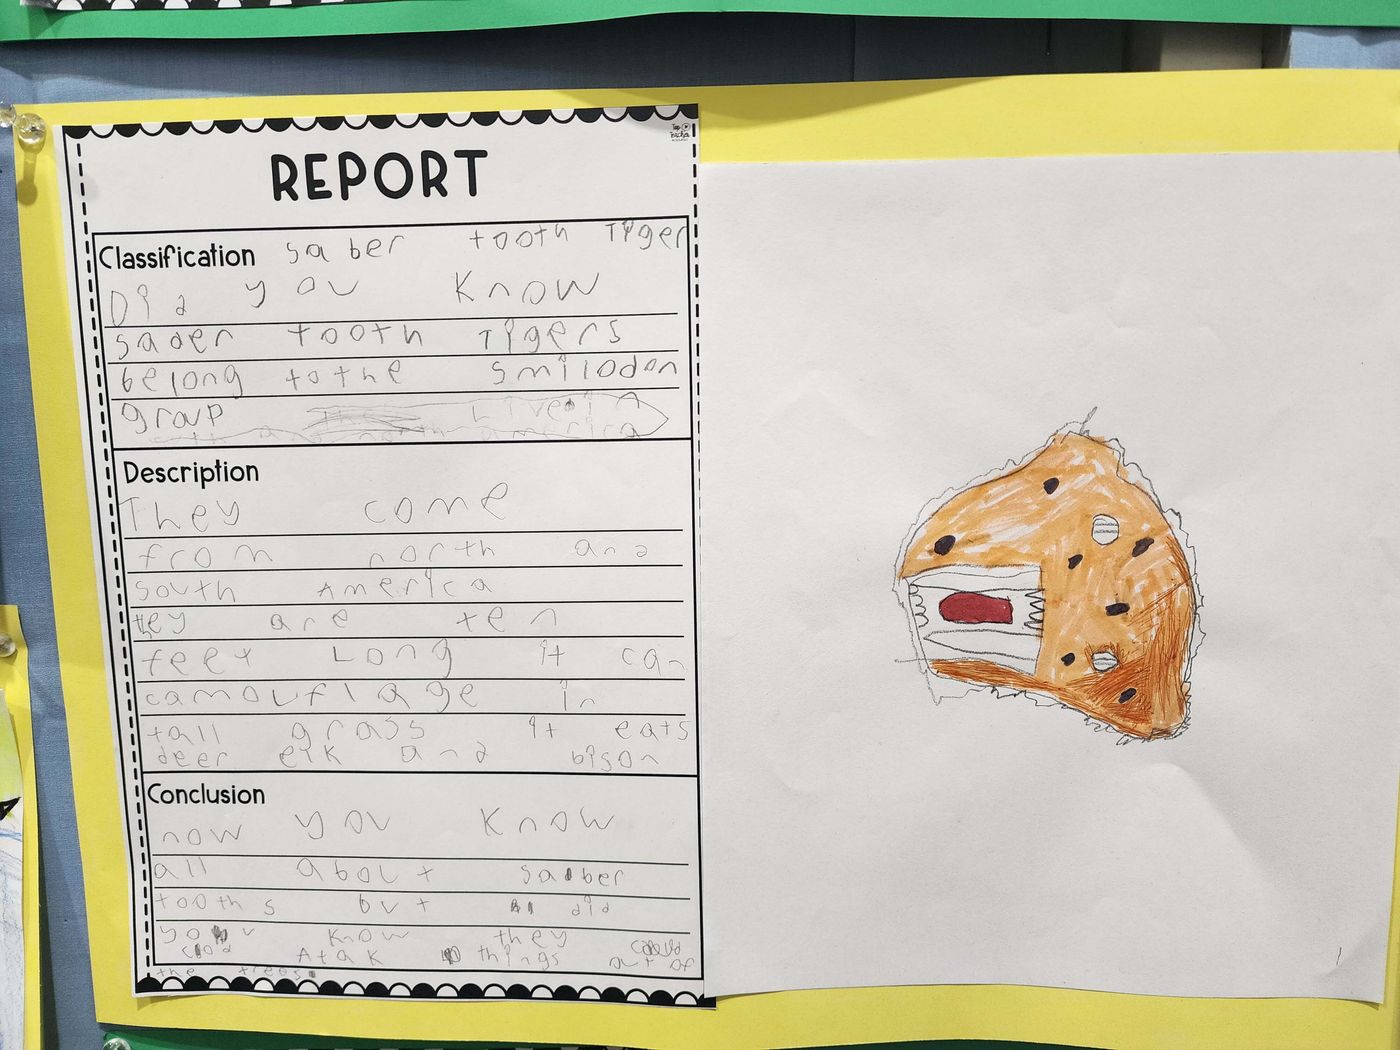 Top Teacher
REPORT
Classification saber tooth Tiger
Did you Know
saber tooth Tigers
belong to the smilodon
group Live in
and north america
Description
They come
from north and
south America
they are ten
feet Long it can
camouflage in
tall grass it eats
deer elk and bison
Conclusion
now you Know
all about saber
tooths but did
you know they
Atak things out of
the trees.